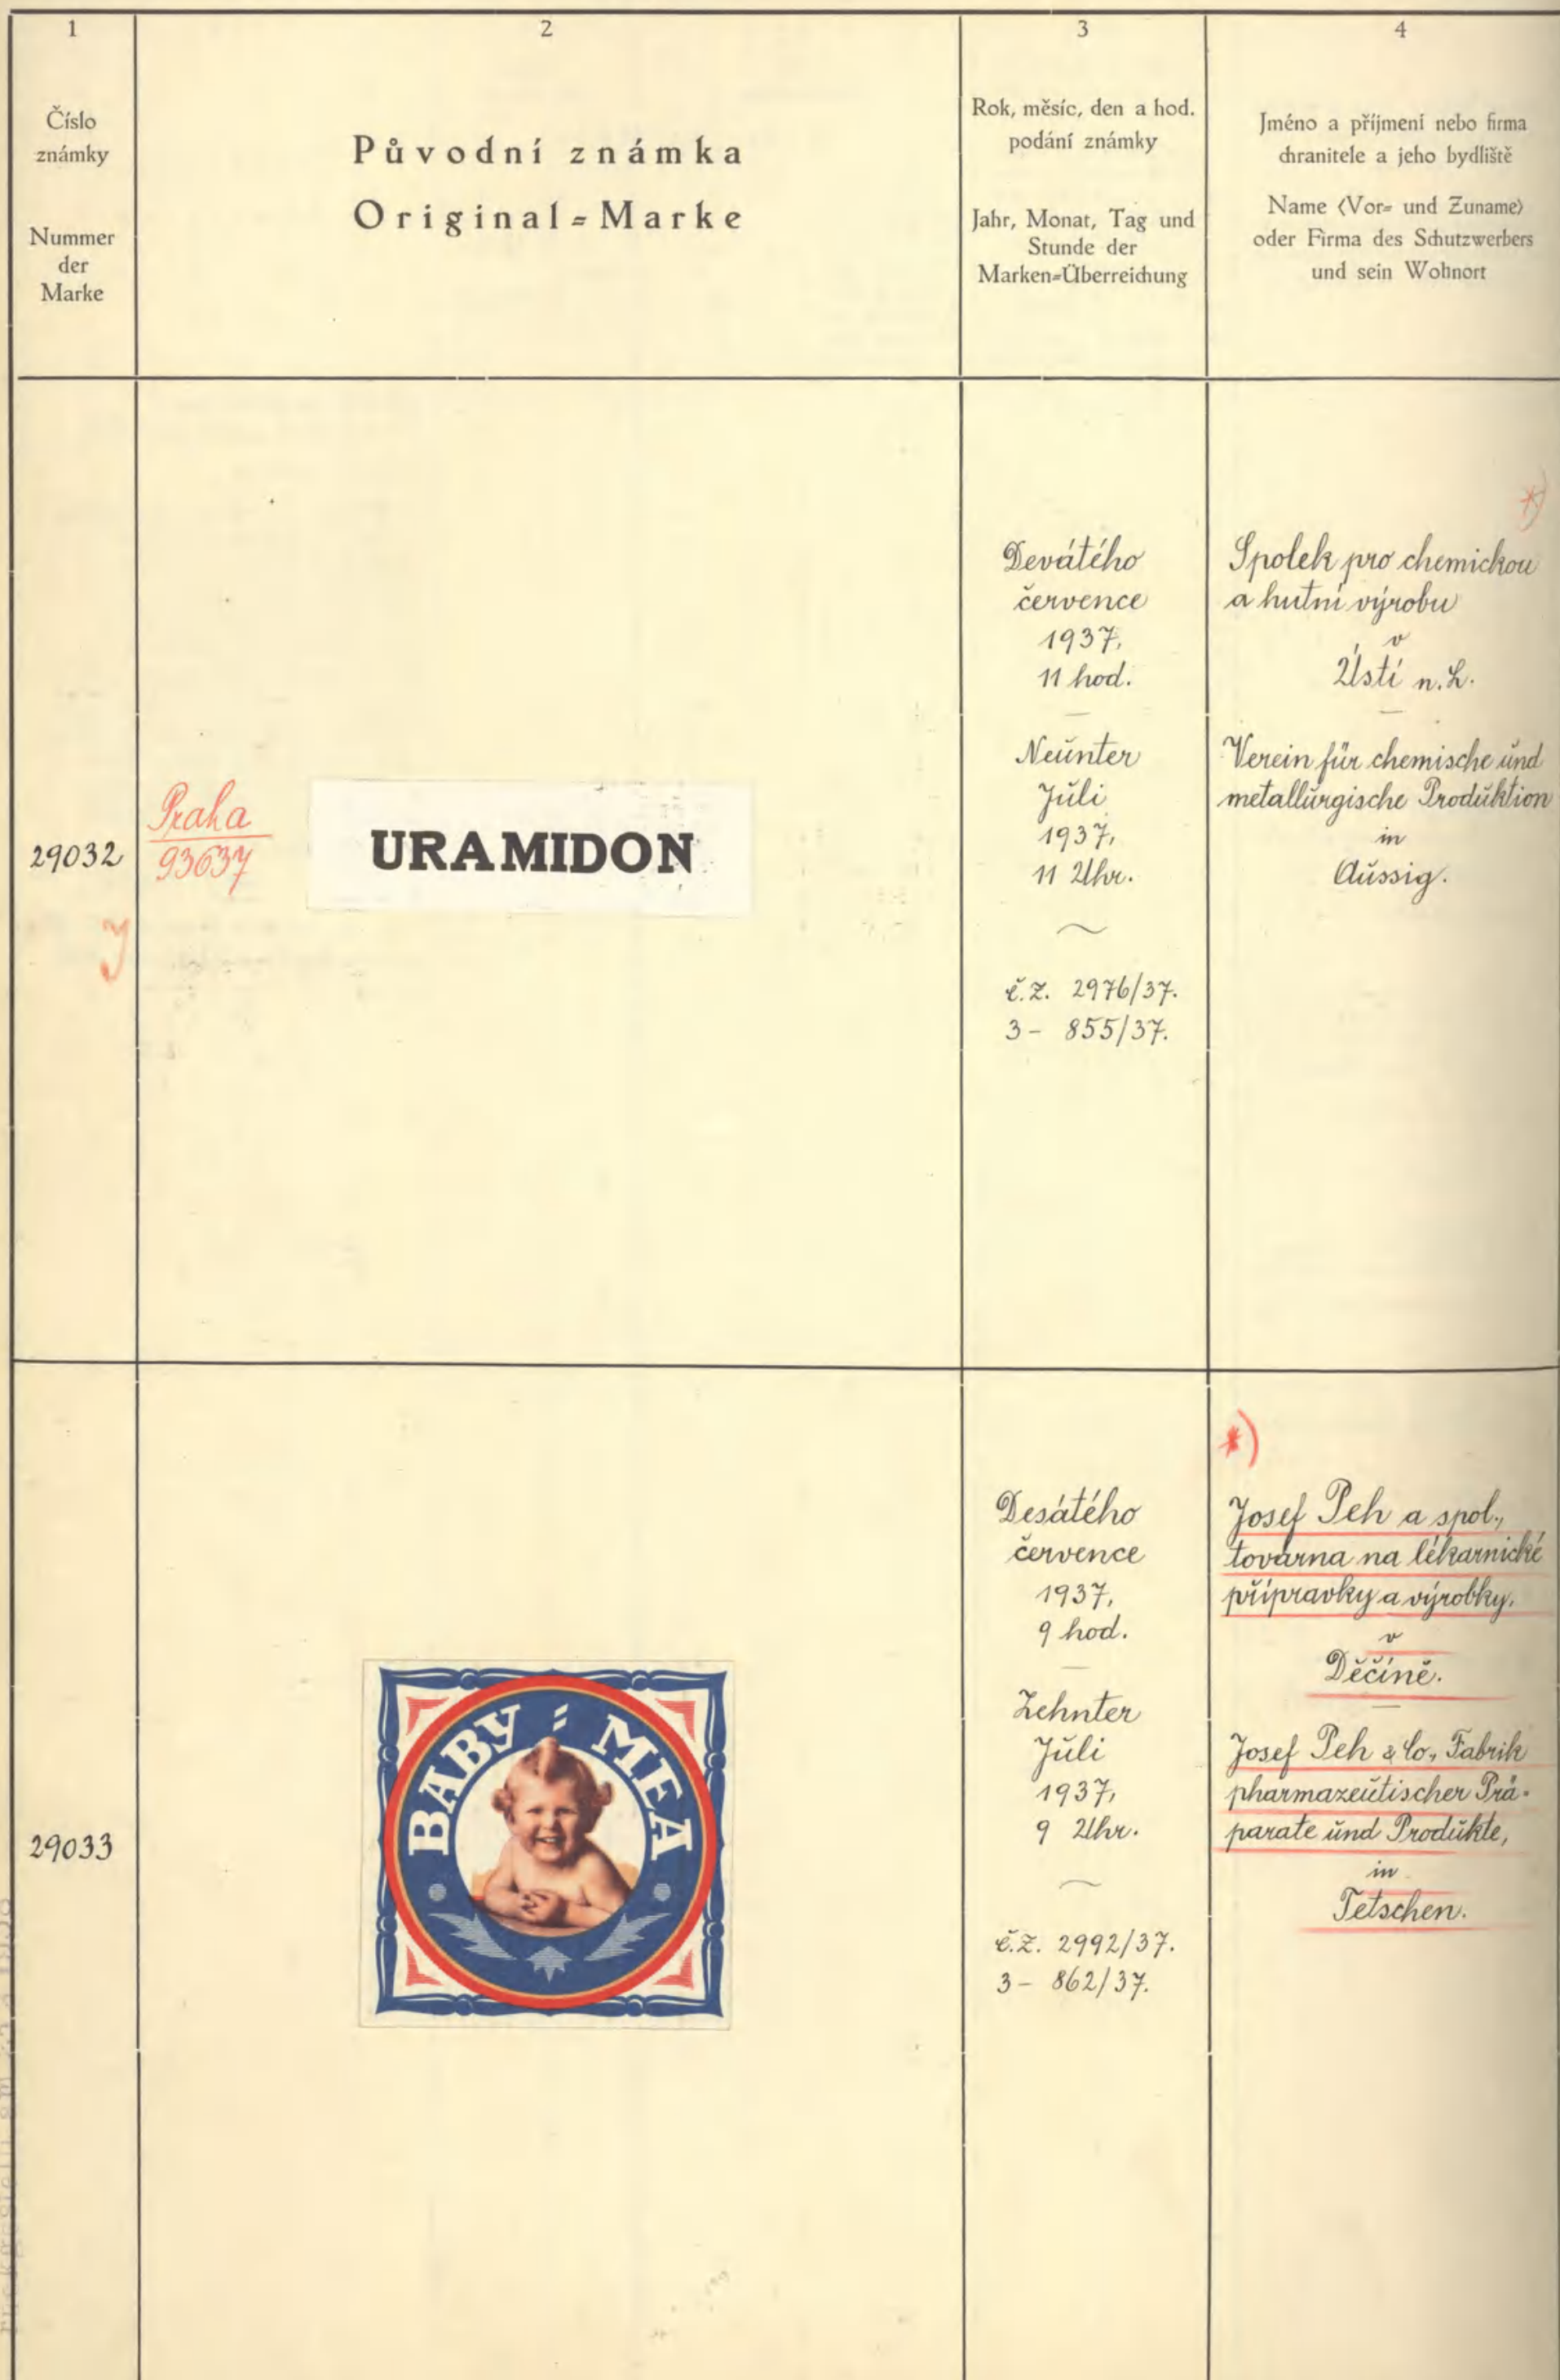 1
Číslo
známky
Nummer
der
Marke
2
Původní známka
Original=Marke
3
Rok, měsíc, den a hod.
podání známky
Jahr, Monat, Tag und
Stunde der
Marken=Überreichung
4
Jméno a příjmení nebo firma
chranitele a jeho bydliště
Name (Vor= und Zuname)
oder Firma des Schutzwerbers
und sein Wohnort
29032
Praha
93637
URAMIDON
Devátého
července
1937,
11 hod.
Neunter
Juli
1937,
11 Uhr.
č.z. 2976/37.
3- 855/37.
*)
Spolek pro chemickou
a hutní výrobu
v
Ústí n.L.
Verein für chemische und
metallurgische Produktion
in
Aussig.
29033
BABY=MEA
Desátého
července
1937,
9 hod.
Zehnter
Juli
1937,
9 Uhr.
č.z. 2992/37.
3- 862/37.
*)
Josef Peh a spol.,
továrna na lékarnické
přípravky a výrobky.
v
Děčíně.
Josef Peh & Co., Fabrik
pharmazeutischer Prä-
parate und Produkte,
in
Tetschen.